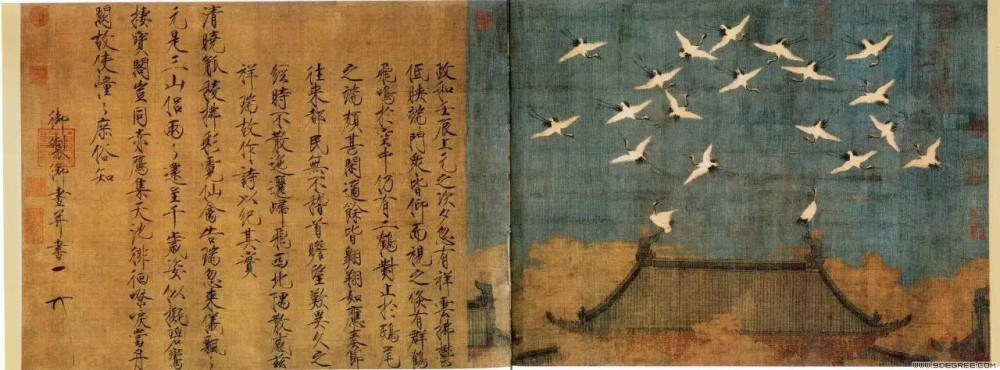 政和壬辰上元之次夕忽有祥雲拂鬱
低映端門衆皆仰而視之倏有群鶴
飛鳴於空中仍有二鶴對止於鴟尾
之端頗甚閑適餘皆翱翔如應奏節
往來都民無不稽首瞻望歎異久之
經時不散迤邐歸飛西北隅散感茲
祥瑞故作詩以紀其實
清曉觚稜拂彩霓仙禽告瑞忽來儀飄々
元是三山侶兩々還呈千歲姿似擬碧鸞
棲寶閣豈同赤鴈集天池徘徊嘹唳當丹
闕故使憧々庶俗知
御製御畫并書
WWW.9DEGREE.COM